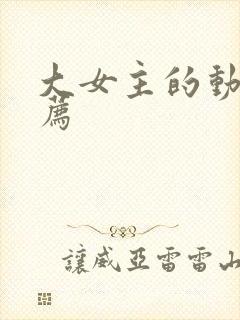 大女主的動
薦
讓威亞雷雷山